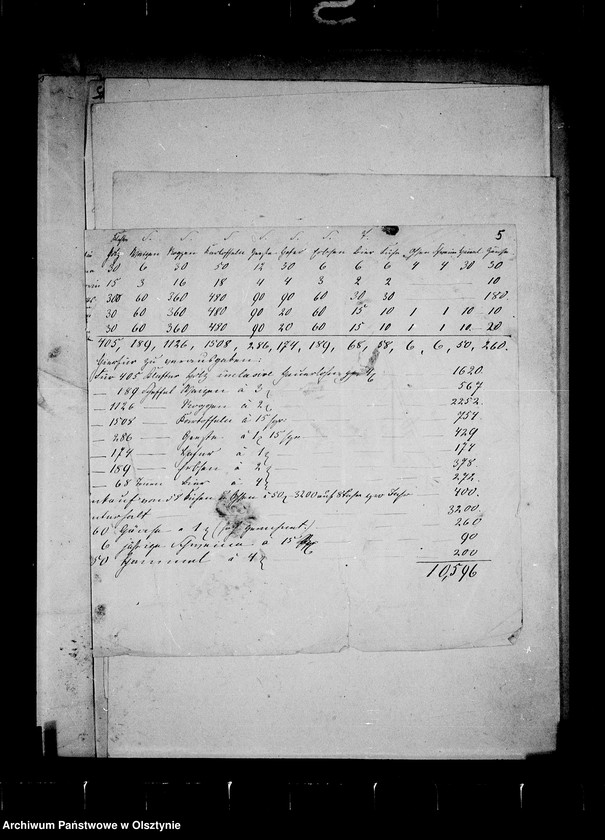 5
Klafter S. S. S. S. S. S. T.
Holz Waizen Roggen Kartoffeln Gerste Hafer Erbsen Bier Kühe Ochsen Schweine Hamel Gänse
30 6 30 50 12 30 6 6 6 4 4 30 30
15 3 16 18 4 4 3 2 2 10
300 60 360 480 90 90 60 30 30 180.
30 60 360 480 90 20 60 15 10 1 1 10 10
30 60 360 480 90 20 60 15 10 1 1 10 20
405, 189, 1126, 1508, 286, 174, 189, 68, 58, 6, 6, 50, 260.
Hierfür zu verausgaben:
Für 405 Klafter Holz inclusive 4 1620.
— 189 Scheffel Waizen à 3 567
— 1126 — Roggen à 2 2252.
— 1508 — Kartoffeln à 15 sgr. 754
— 286 — Gerste à 1 15 sgr. 429
— 174 — Hafer à 1 174
— 189 — Erbsen à 2 378
— 68 Tonnen Bier à 4 272.
58 Kühen 6 Ochsen à 50 3200 auf 8 Jahre 400.
3200.
60 Gänse à 1 260
6 jährige Schweine à 15 90
50 Hammel à 4 200
10,596
Archiwum Państwowe w Olsztynie